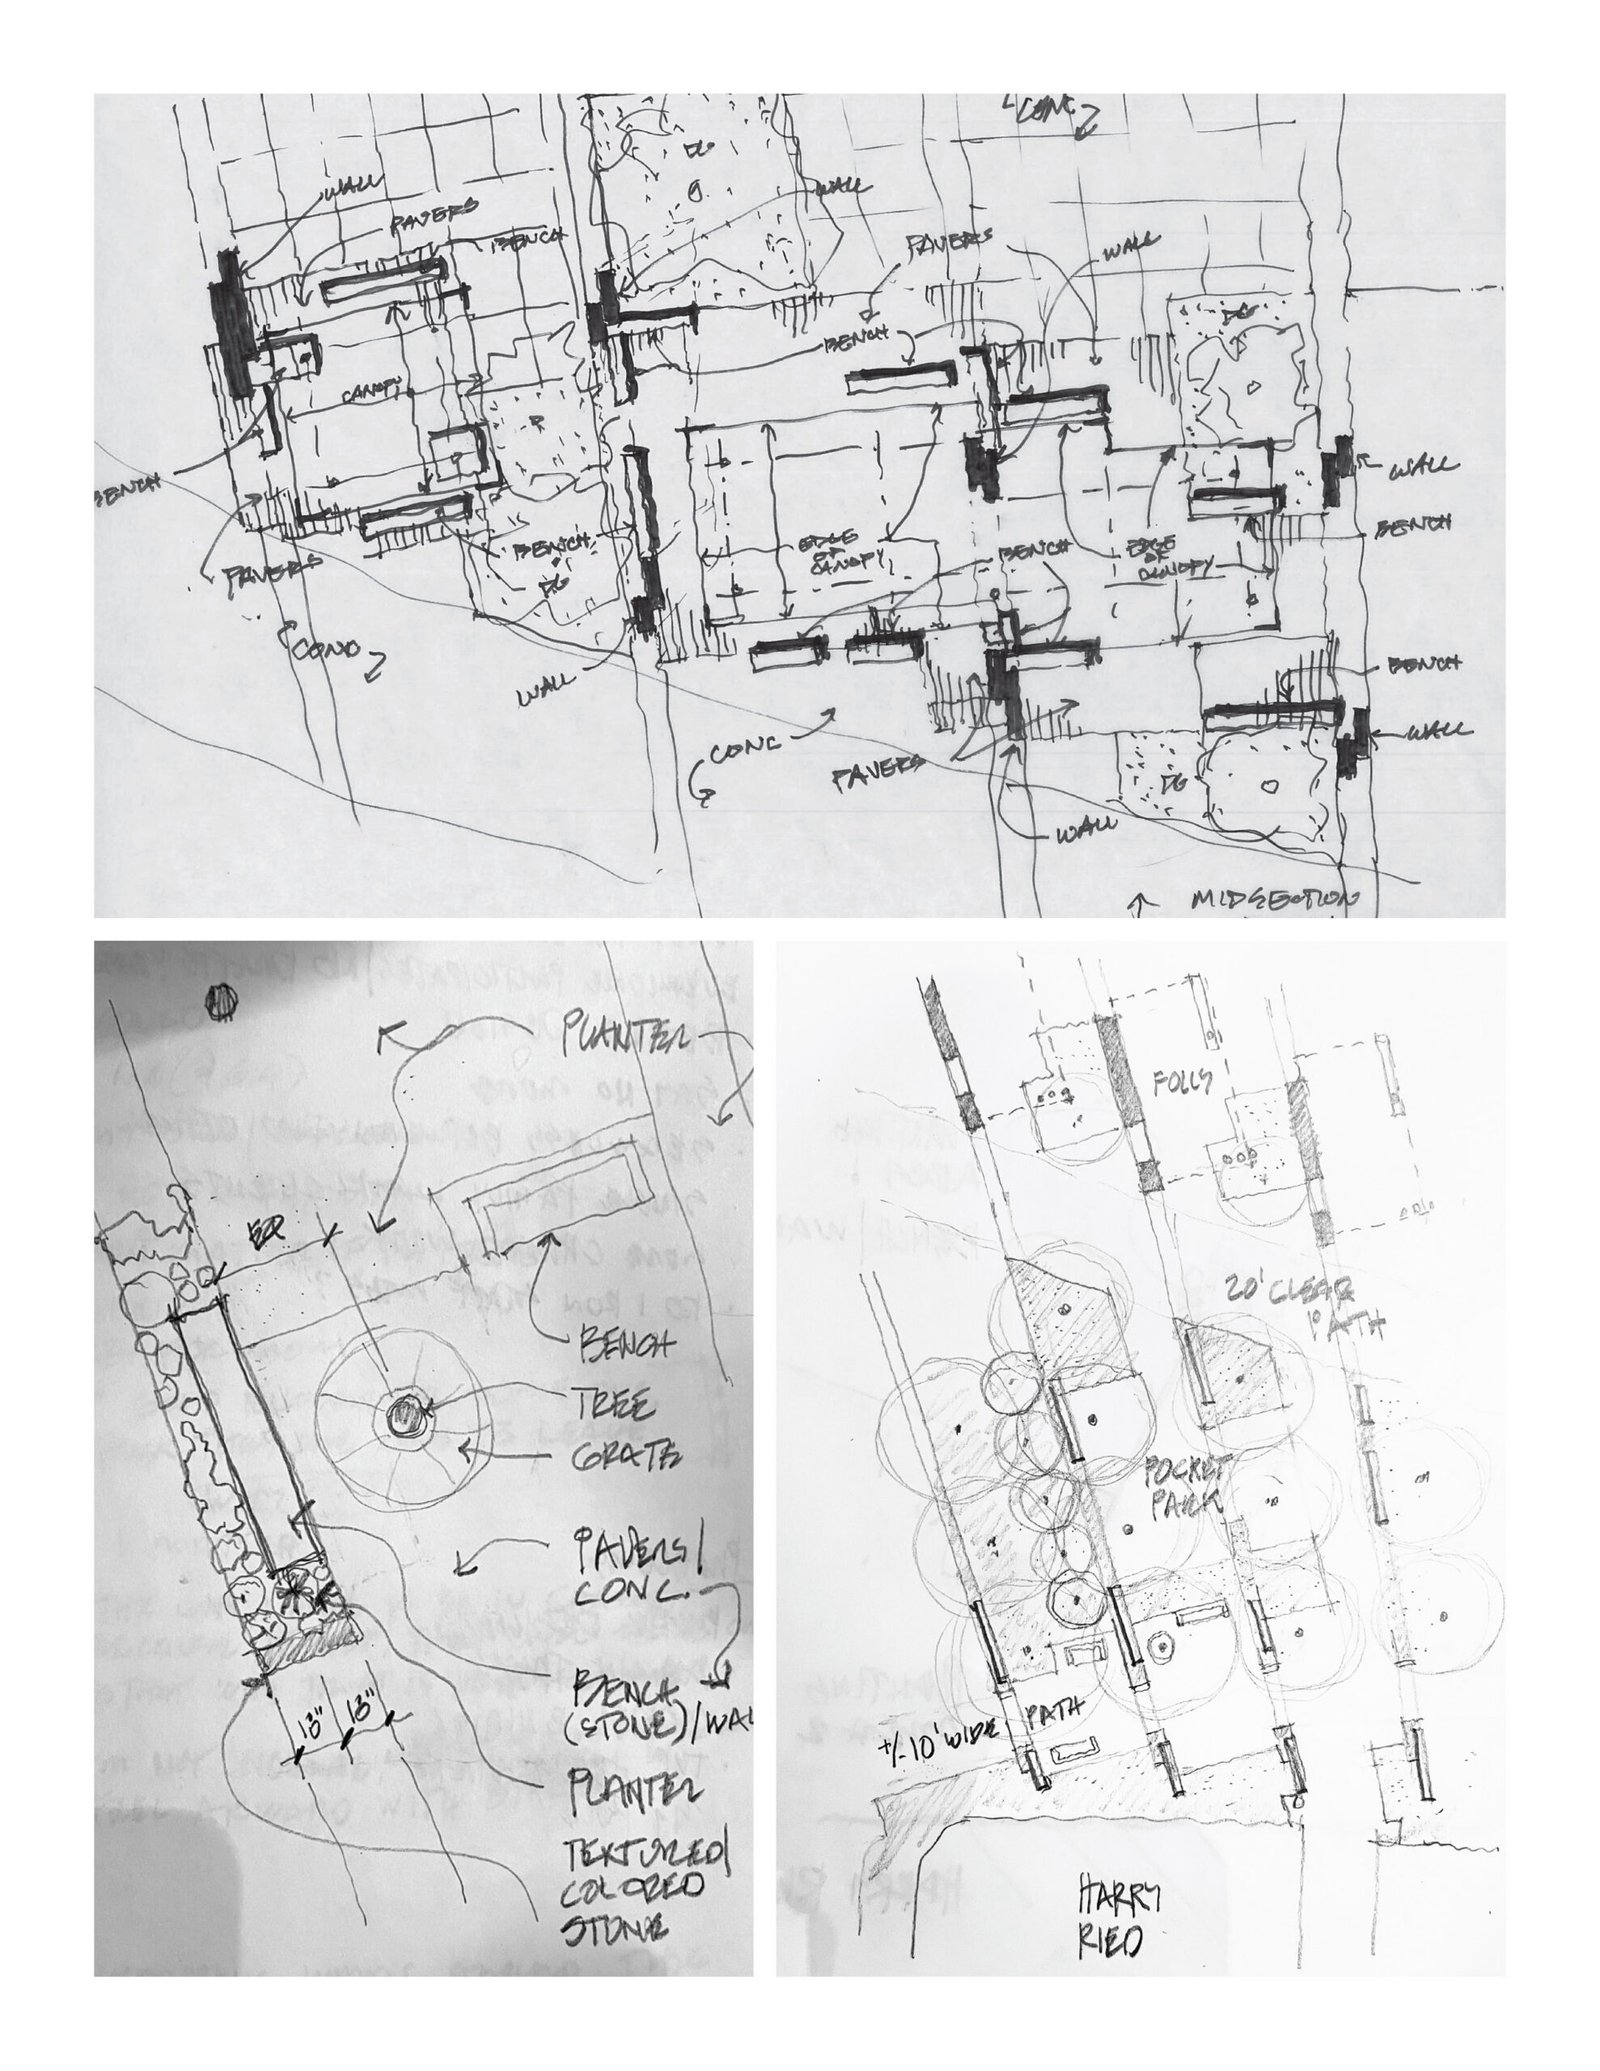 CONC
WALL
WALL
PAVERS
BENCH
PAVERS
WALL
DG
DG
BENCH
CANOPY
WALL
BENCH
BENCH
BENCH
DG
EDGE
OF
CANOPY
BENCH
EDGE
OF
CANOPY
PAVERS
CONC
WALL
BENCH
CONC
PAVERS
DG
WALL
WALL
MIDSECTION
PLANTER
EQ
BENCH
TREE
GRATE
PAVERS/
CONC.
BENCH
(STONE)/WAL
18" 18"
PLANTER
TEXTURED/
COLORED
STONE
FOLLY
20' CLEAR
PATH
POCKET
PARK
PATH
+/-10' WIDE
HARRY
RIED